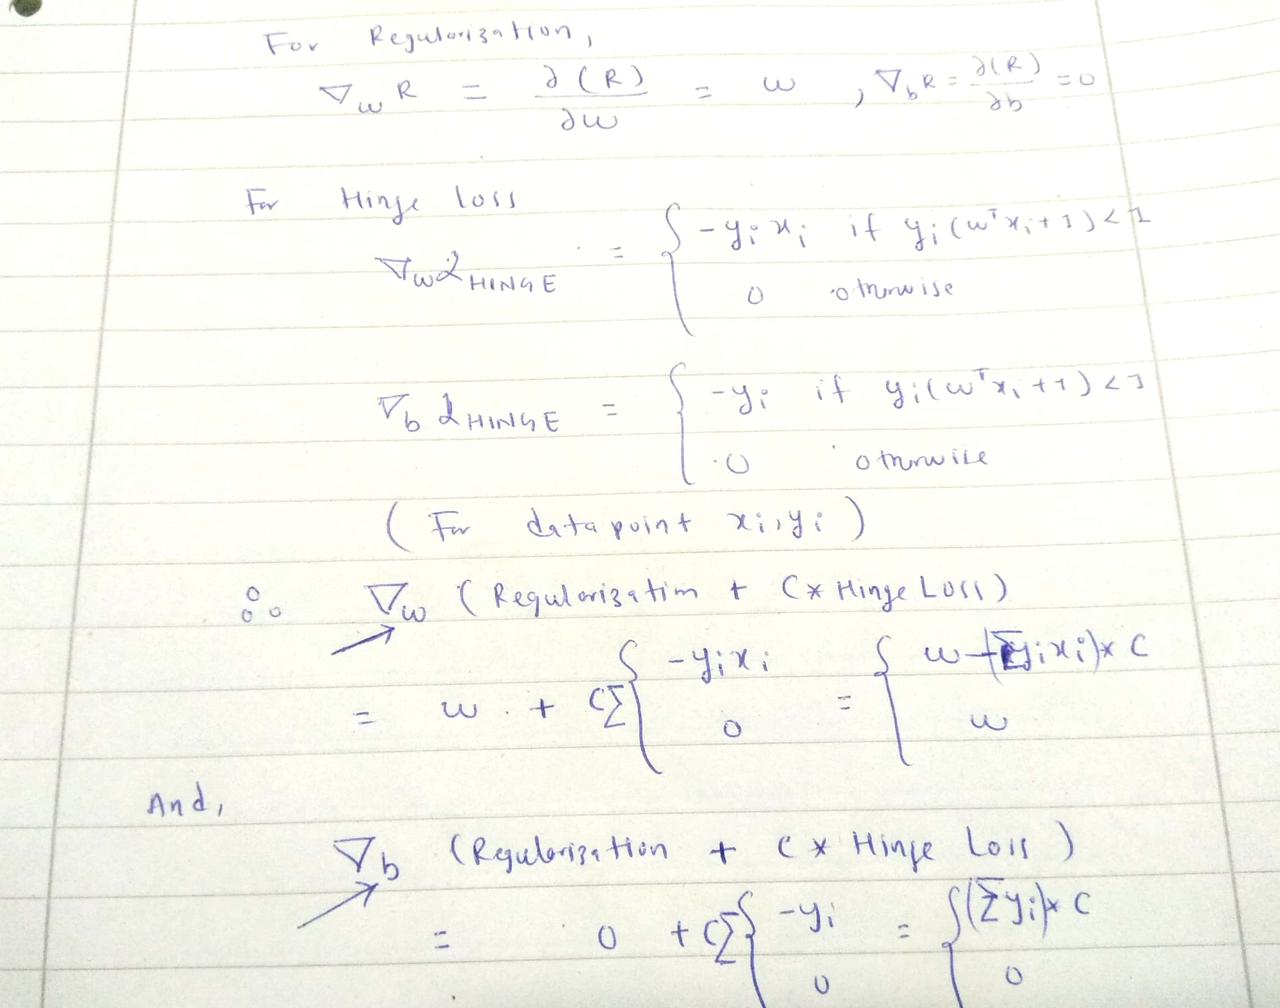 For Regularization,
∇_w R = ∂(R)/∂w = w , ∇_b R = ∂(R)/∂b = 0
For Hinge loss
∇_w L_HINGE = { -y_i x_i if y_i(w^T x_i + 1) < 1
0 otherwise
∇_b L_HINGE = { -y_i if y_i(w^T x_i + 1) < 1
0 otherwise
(For datapoint x_i, y_i)
∴ ∇_w (Regularization + C * Hinge Loss)
= w + C Σ { -y_i x_i = { w - (Σ y_i x_i) * C
0 w
And,
∇_b (Regularization + C * Hinge Loss)
= 0 + C Σ { -y_i = { (Σ y_i) * C
0 0